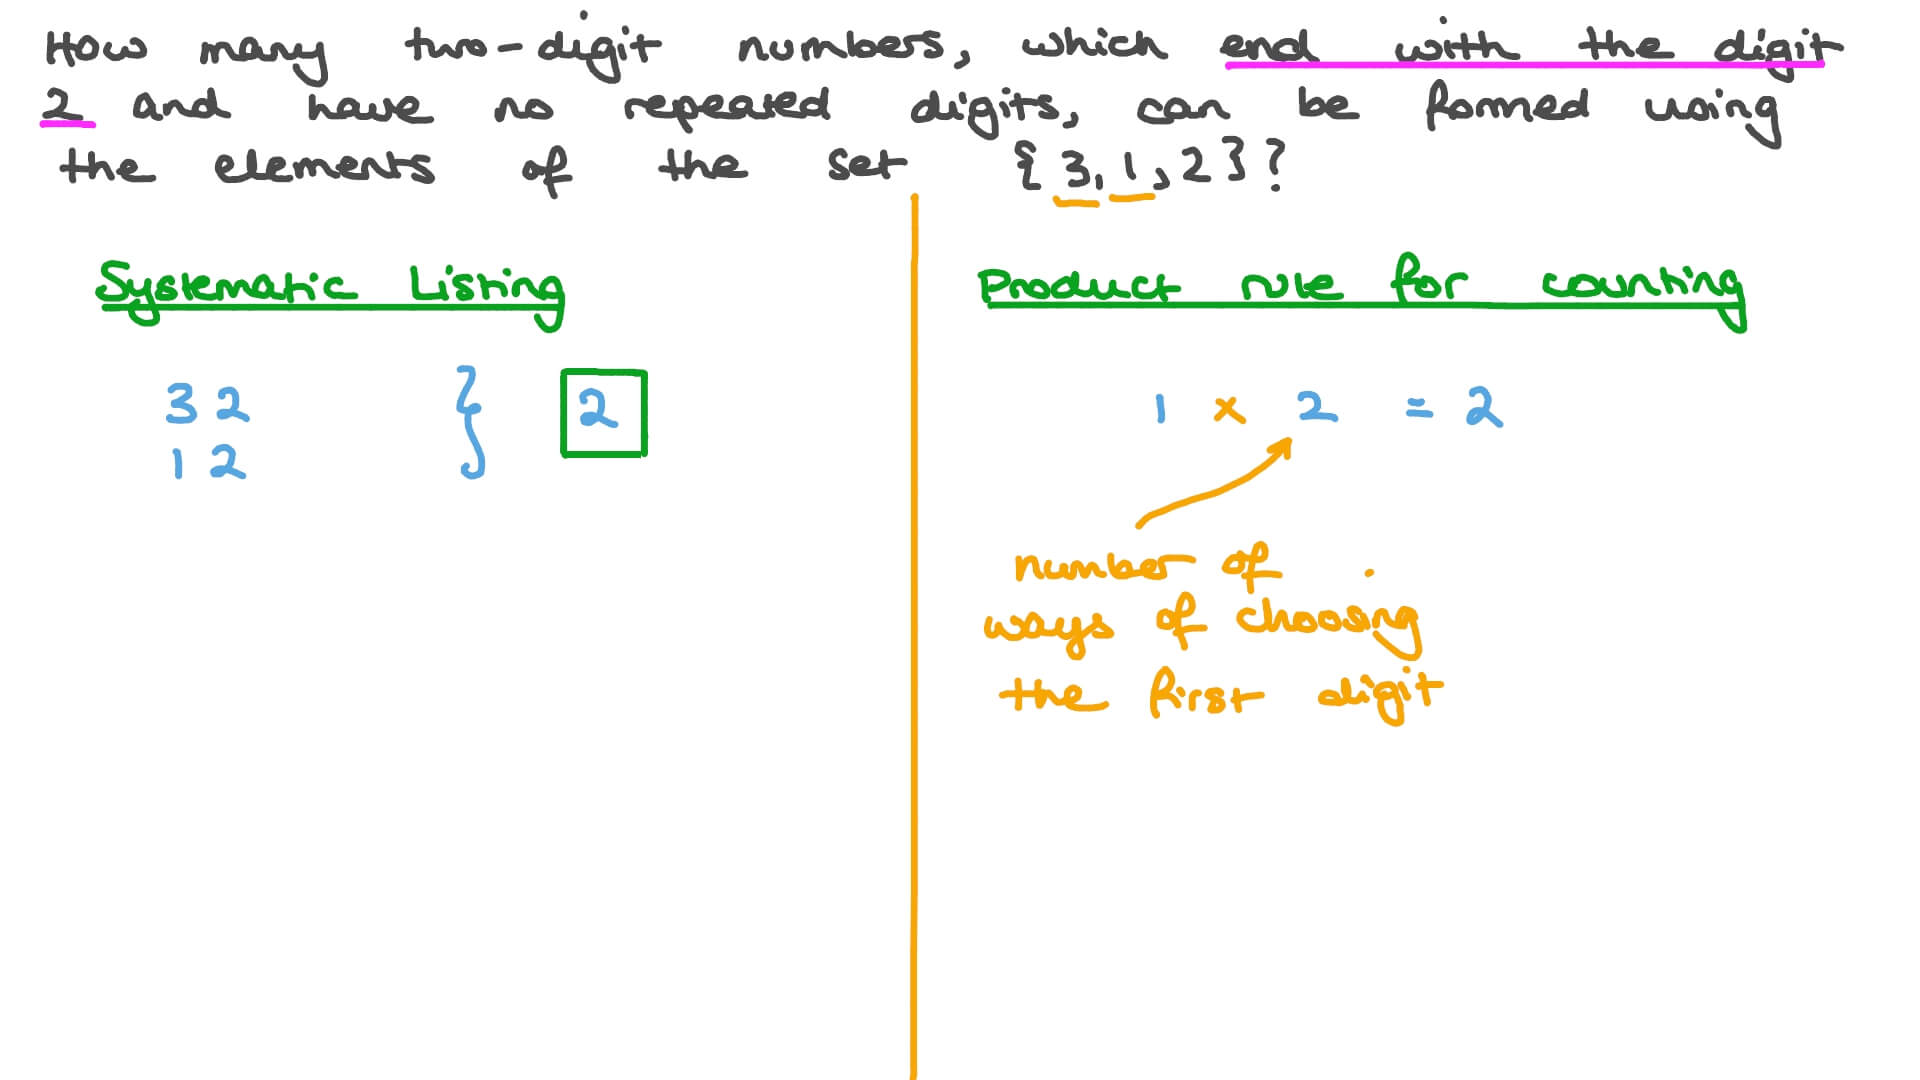 How many two-digit numbers, which end with the digit
2 and have no repeated digits, can be formed using
the elements of the set {3,1,2}?
Systematic Listing
3 2
1 2
} 2
Product rule for counting
1 x 2 = 2
number of
ways of choosing
the first digit